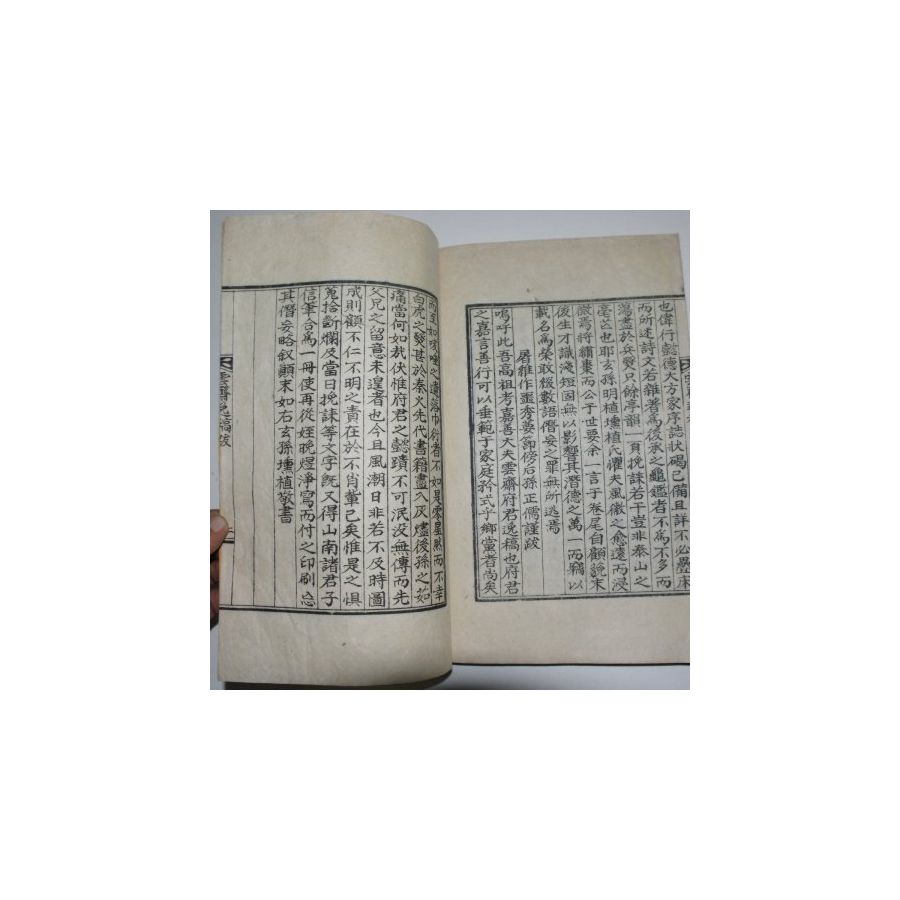 也偉行懿德大方家序誌狀碣已備且詳不必疊床
而所述詩文若雜著爲後承之龜鑑者不爲不多而
蕩盡於兵燹只餘亭韻一頁挽誄若干豈非泰山之
毫芒也耶玄孫明植壎植氏懼夫風徽之愈遠而浸
微焉將繡棗而公于世要余一言于卷尾自顧貌末
後生才識淺短固無以影響其潛德之萬一而竊以
載名爲榮敢綴數語僭妄之罪無所逃焉
屠維作噩秀葽節傍后孫正儒謹跋
嗚呼此吾高祖考嘉善大夫雲齋府君逸稿也府君
之嘉言善行可以垂範于家庭矜式乎鄉黨者尚矣
而至如咳唾之遺落巾衍者不如是零星然而不幸
白虎之燹甚於秦火先代書籍盡入灰燼後孫之茹
痛當何如哉伏惟府君之懿蹟不可泯没無傳而先
父兄之留意未遑者也今且風潮日非若不及時圖
成則顧不仁不明之責在於不肖輩已矣惟是之惧
蒐拾斷爛及當日挽誄等文字旣又得山南諸君子
信筆合爲一冊使再從姪晩煜淨寫而付之印刷忘
其僭妄略叙顚末如右玄孫壎植敬書
雲齋逸稿跋